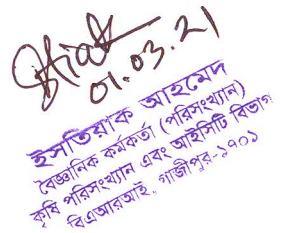 01.03.21
ইসতিয়াক আহমেদ
বৈজ্ঞানিক কর্মকর্তা (পরিসংখ্যান)
কৃষি পরিসংখ্যান এবং আইসিটি বিভাগ
বিএআরআই, গাজীপুর-১৭০১